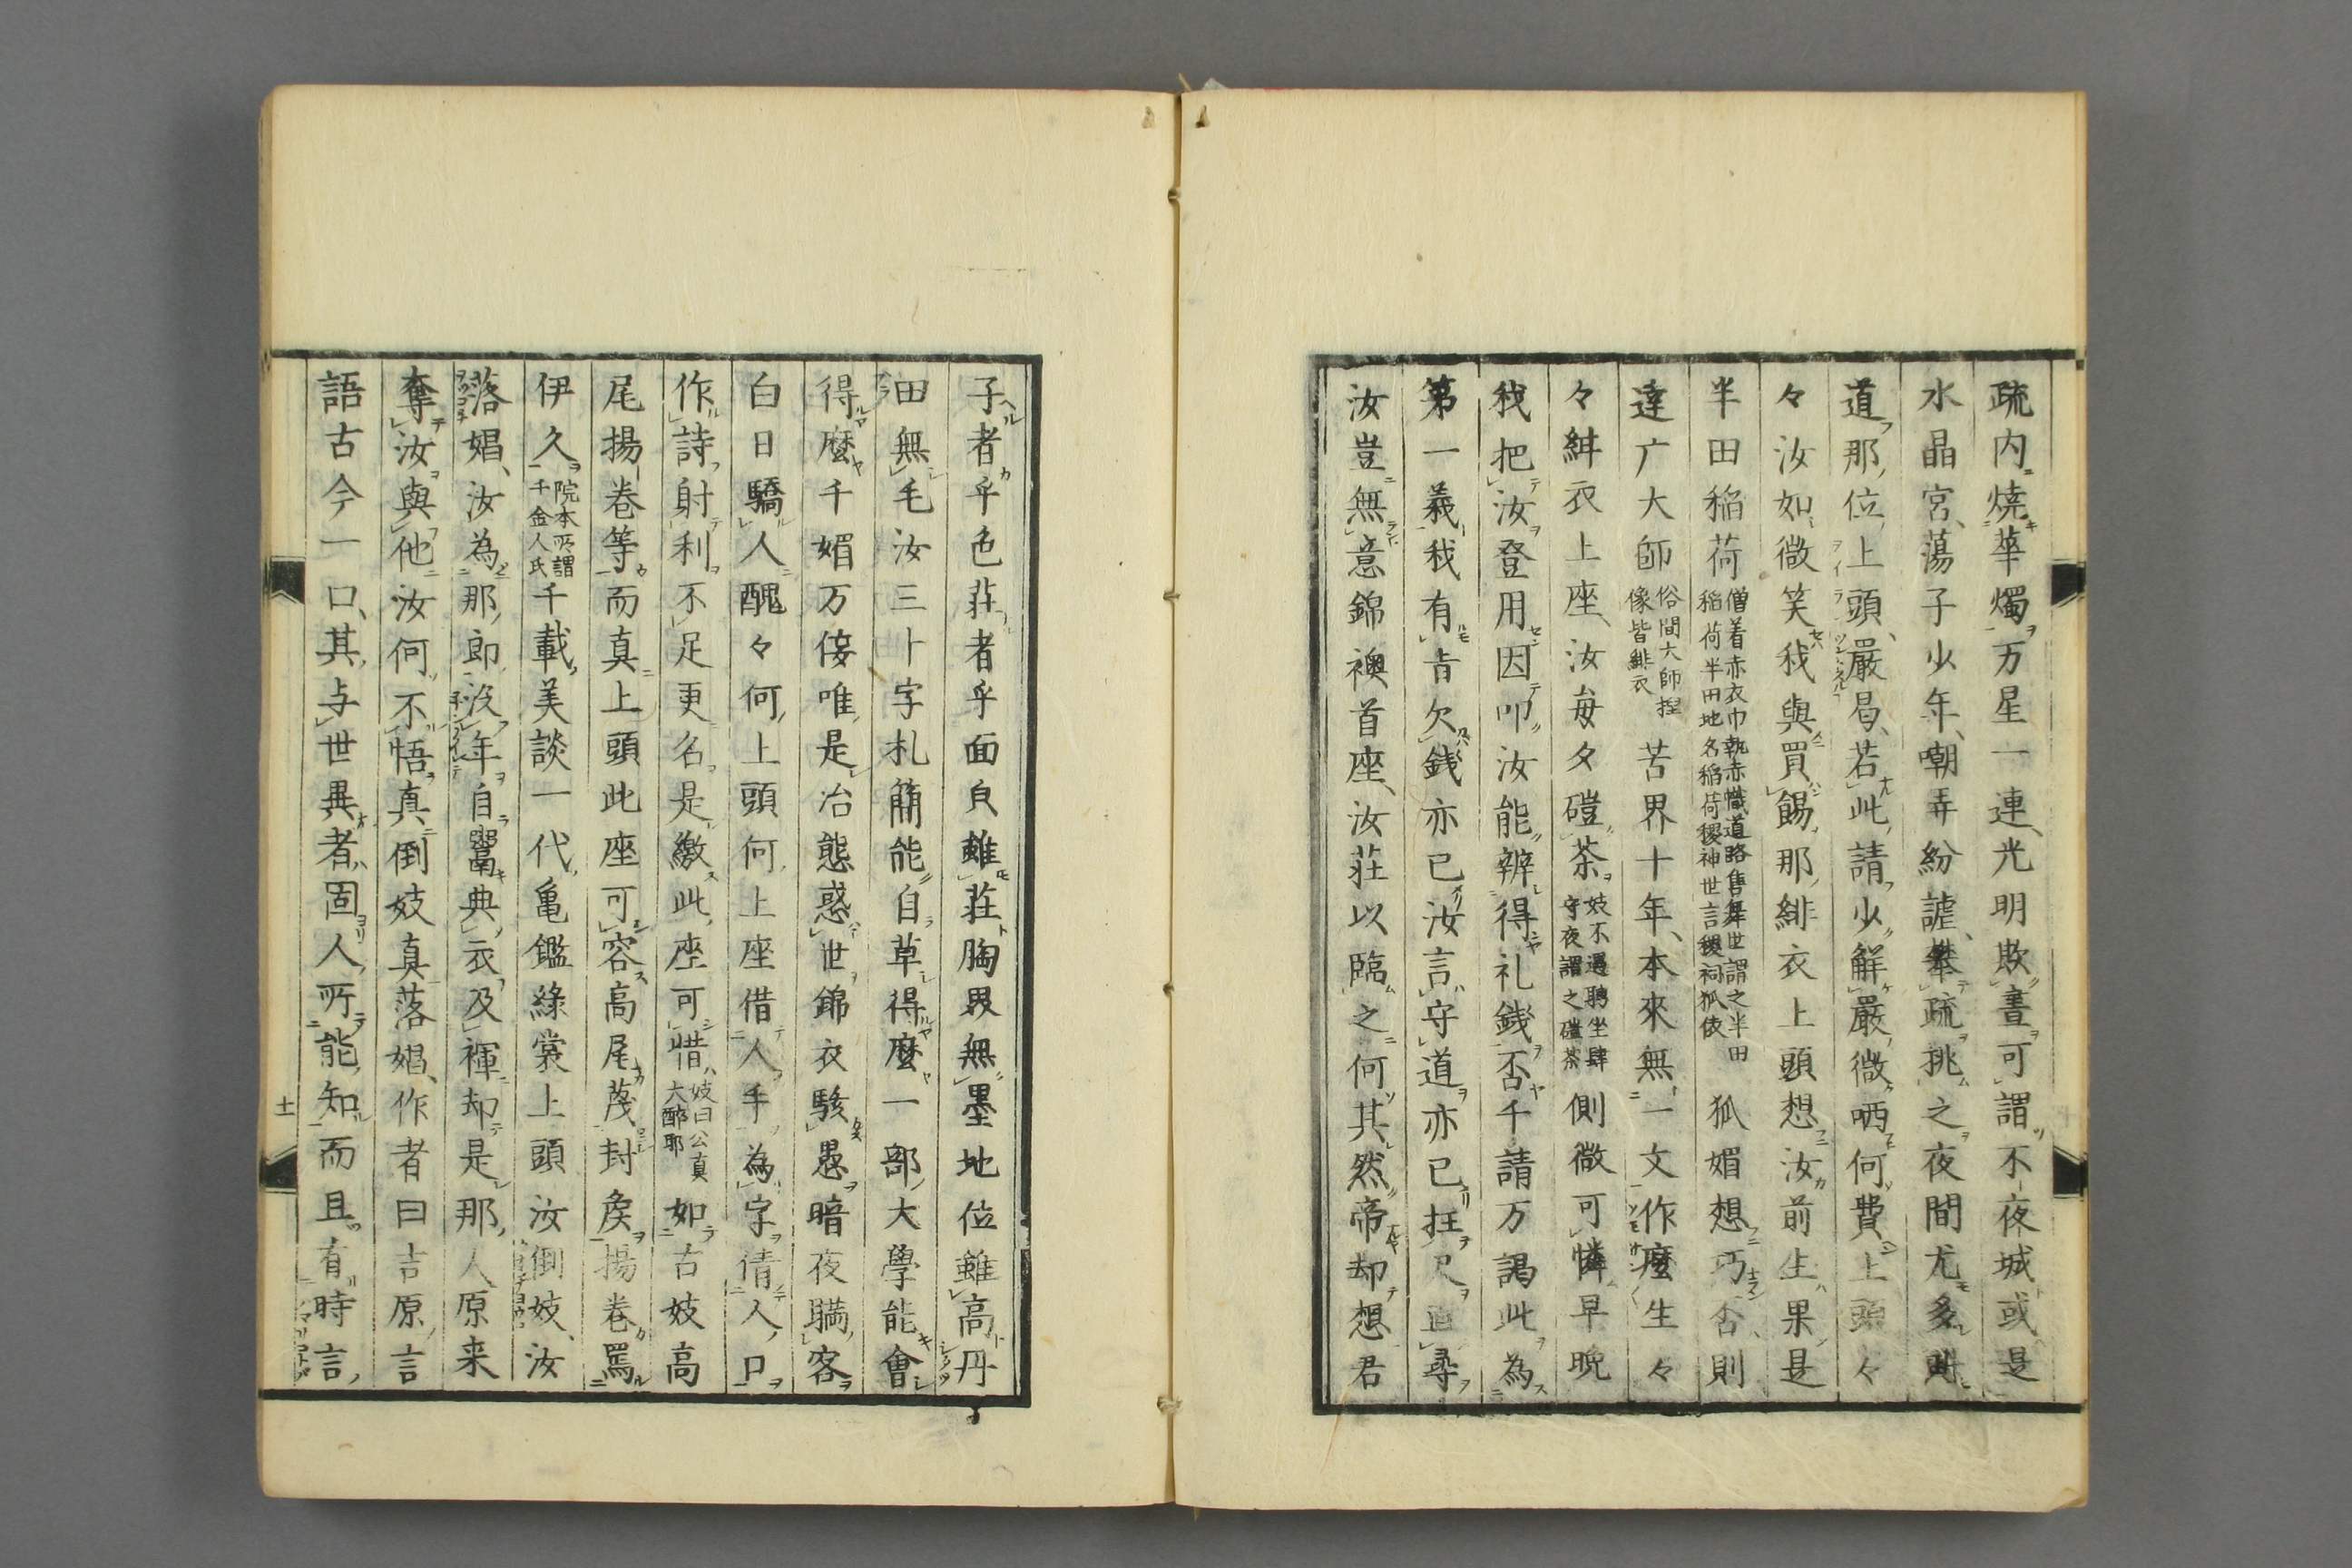 疏内燒華燭万星一連、光明欺晝可謂不夜城或是
水晶宮、蕩子少年、嘲弄紛謔、攀疏挑之夜間尤多時
道那位上頭、嚴曷、若此請少解嚴微哂何費上頭々
々汝如微笑我與買餳那緋衣上頭想汝前生果是
半田稲荷僧着赤衣巾執赤幟道路售舞世謂之半田稲荷半田地名稲荷稷神世言稷祠狐依狐媚想巧否、則
達广大師俗間大師捏像皆緋衣苦界十年、本來無一文作麼生々
々緋衣上座、汝毎夕磑茶妓不遇聘坐肆守夜謂之磑茶側微可憐早晩
我把汝登用因叩汝能辨得礼銭否千請万謁此為
第一義我有肯欠銭亦已汝言守道亦已抂尺直尋
汝豈無意錦襖首座、汝莊以臨之何其然帝却想君
子者乎色莊者乎面皃雖莊胸界無墨地位雖高丹
田無毛汝三十字札簡能自草得麼一部大學能會
得麼千媚万倿唯是冶態惑世錦衣駭愚暗夜瞞客
白日驕人醜々何上頭何上座借人手為字倩人口
作詩射利不足更名是繳此座可惜妓曰公真大醉耶如古妓高
尾揚卷等而真上頭此座可容高尾蔑封矦揚卷罵
伊久院本所謂千金人氏千載美談一代亀鑑綠裳上頭汝倒妓、汝
落娼、汝為那郎没年自鬻典衣及褌却是那人原来
奪汝與他汝何不悟真倒妓真落娼、作者曰吉原言
語古今一口、其与世異者固人所能知而且有時言
十一